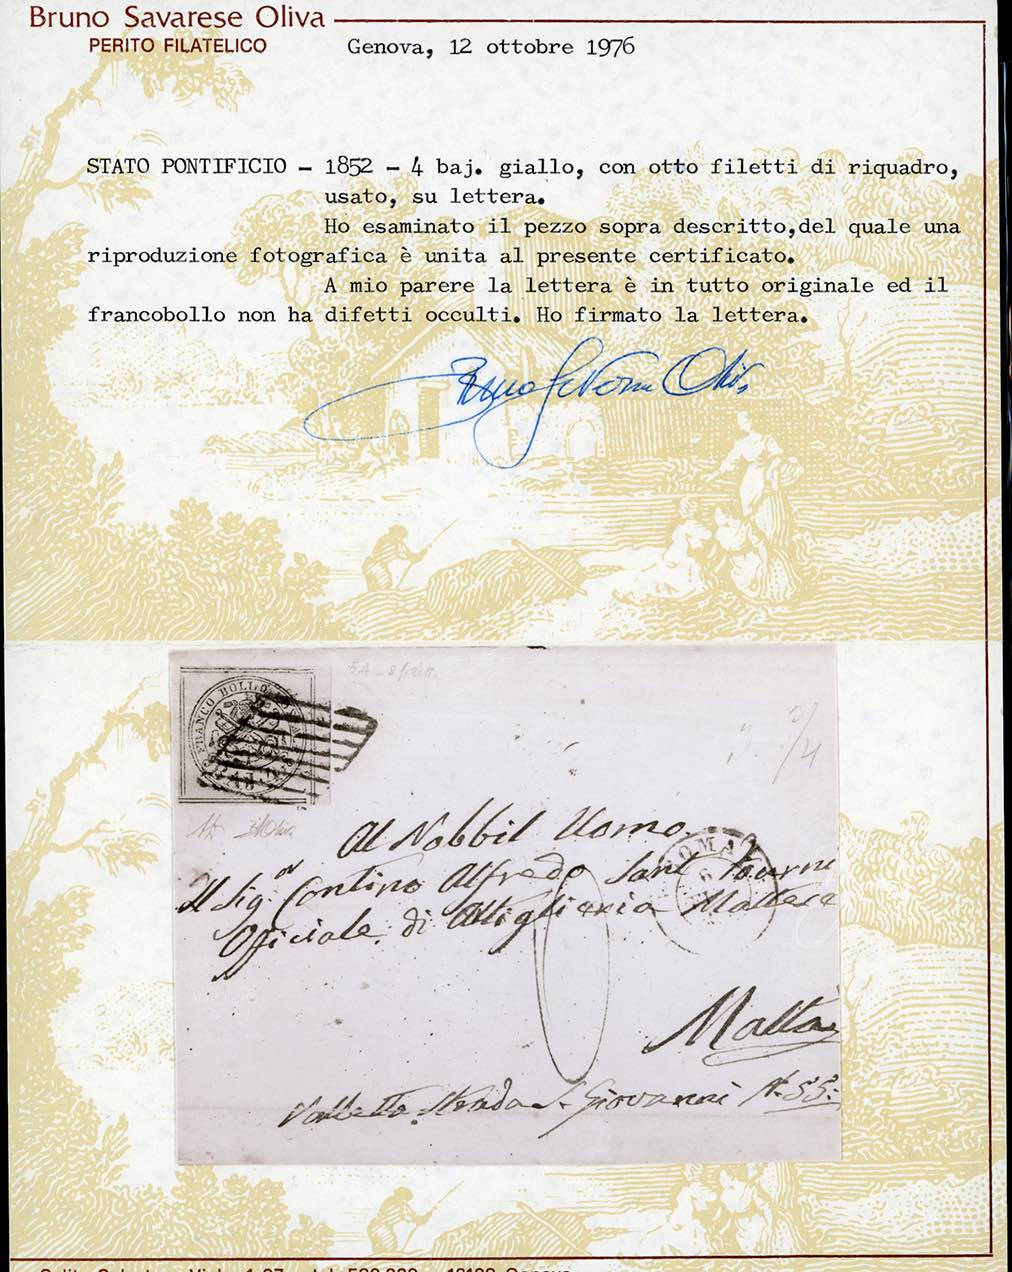 Bruno Savarese Oliva
PERITO FILATELICO
Genova, 12 ottobre 1976
STATO PONTIFICIO - 1852 - 4 baj. giallo, con otto filetti di riquadro,
usato, su lettera.
Ho esaminato il pezzo sopra descritto,del quale una
riproduzione fotografica è unita al presente certificato.
A mio parere la lettera è in tutto originale ed il
francobollo non ha difetti occulti. Ho firmato la lettera.
Bruno Savarese Oliva
FRANCO BOLLO
Al Nobbil Uomo
Il Sig. Contino Alfredo Sant Fourni
ROMA
Officiale di Attiglieria Maltese
Malta
Valletta Strada S. Giovanni N. 55.